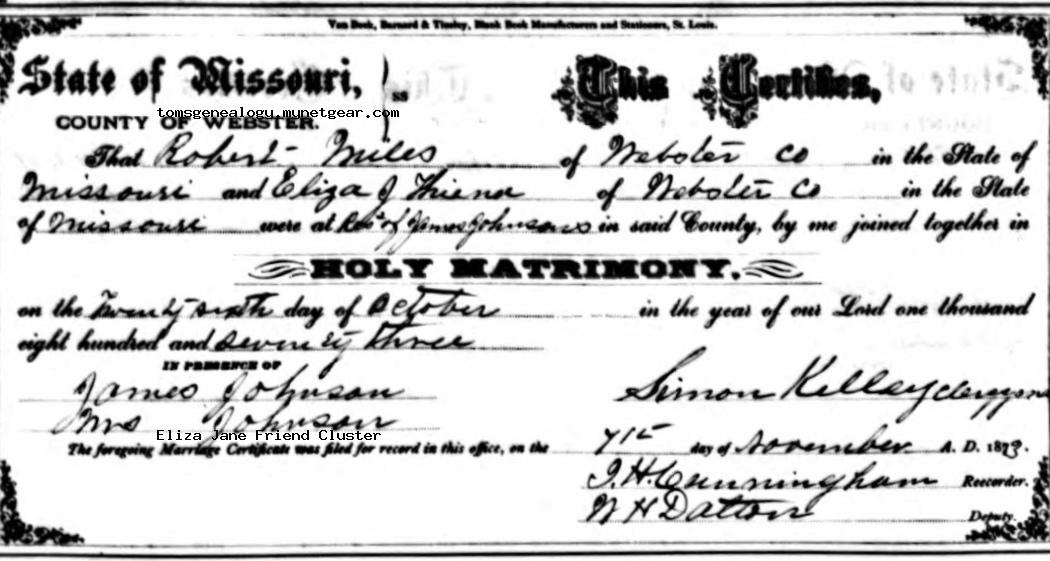 Van Beek, Barnard & Tinsley, Blank Book Manufacturers and Stationers, St. Louis.
State of Missouri, } ss This Certifies,
tomsgenealogy.mynetgear.com
COUNTY OF WEBSTER.
That Robert Miles of Webster Co in the State of
Missouri and Eliza J Friend of Webster Co in the State
of Missouri were at Res of James Johnsons in said County, by me joined together in
HOLY MATRIMONY,
on the Twenty sixth day of October in the year of our Lord one thousand
eight hundred and seventy three
IN PRESENCE OF
James Johnson Simon Kelley Clergyman
Mrs Johnson
Eliza Jane Friend Cluster
The foregoing Marriage Certificate was filed for record in this office, on the day of November A. D. 1873.
J. H. Cunningham Recorder.
W H Dalton Deputy.